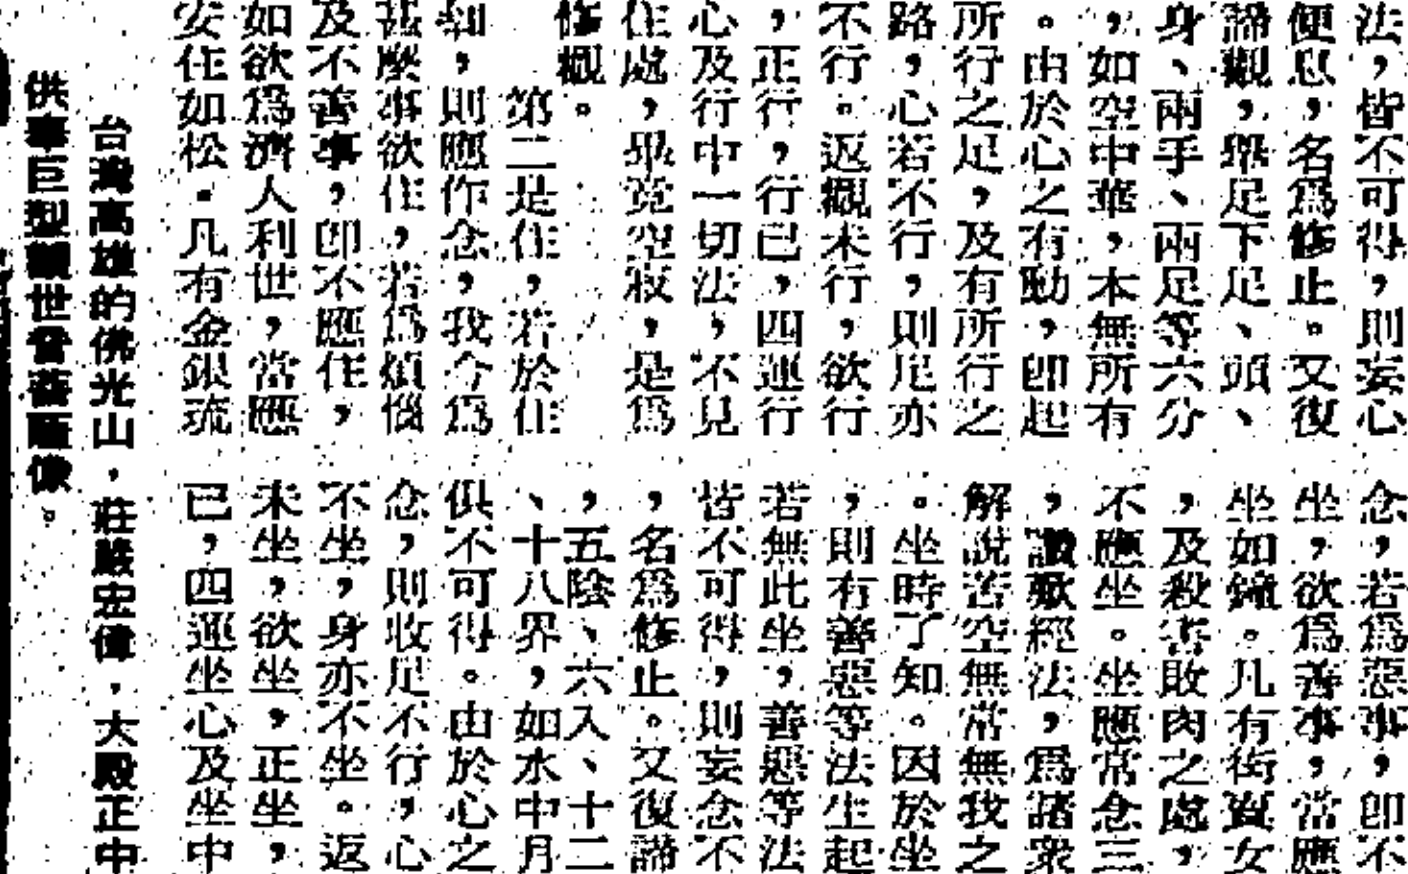 法，皆不可得，則妄心
便息，名爲修止。又復
諦觀，舉足下足、頭、
身、兩手、兩足等六分
，如空中華，本無所有
。由於心之有動，即起
所行之足，及有所行之
路，心若不行，則足亦
不行。返觀未行，欲行
，正行，行已，四運行
心及行中一切法，不見
住處，畢竟空寂，是爲
修觀。
第二是住，若於住
，則應作念，我今爲
甚麼事欲住，若爲煩惱
及不善事，即不應住，
如欲爲濟人利世，當應
安住如松。凡有金銀琉
念，若爲惡事，即不
坐，欲爲善事，當應
坐如鐘。凡有街賣女
，及殺害敗肉之處，
不應坐。坐應常念三
，讚歎經法，爲諸衆
解說苦空無常無我之
。坐時了知。因於坐
，則有善惡等法生起
若無此坐，善惡等法
皆不可得，則妄念不
，名爲修止。又復諦
，五陰、六入、十二
、十八界，如水中月
俱不可得。由於心之
念，則收足不行，心
不坐，身亦不坐。返
未坐，欲坐，正坐，
已，四運坐心及坐中
台灣高雄的佛光山，莊嚴宏偉，大殿正中
供奉巨型觀世音菩薩像。